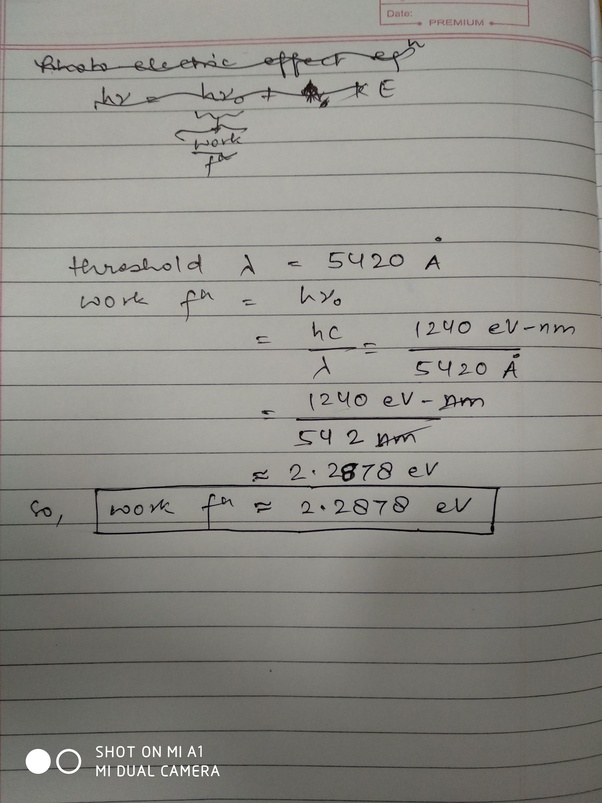 Date:
PREMIUM
Photo electric effect eqⁿ
hν = hν₀ + KE
work
fⁿ
threshold λ = 5420 Å
work fⁿ = hν₀
= hc/λ = 1240 eV-nm / 5420 Å
= 1240 eV-nm / 542 nm
≈ 2.2878 eV
So, work fⁿ ≈ 2.2878 eV
SHOT ON MI A1
MI DUAL CAMERA